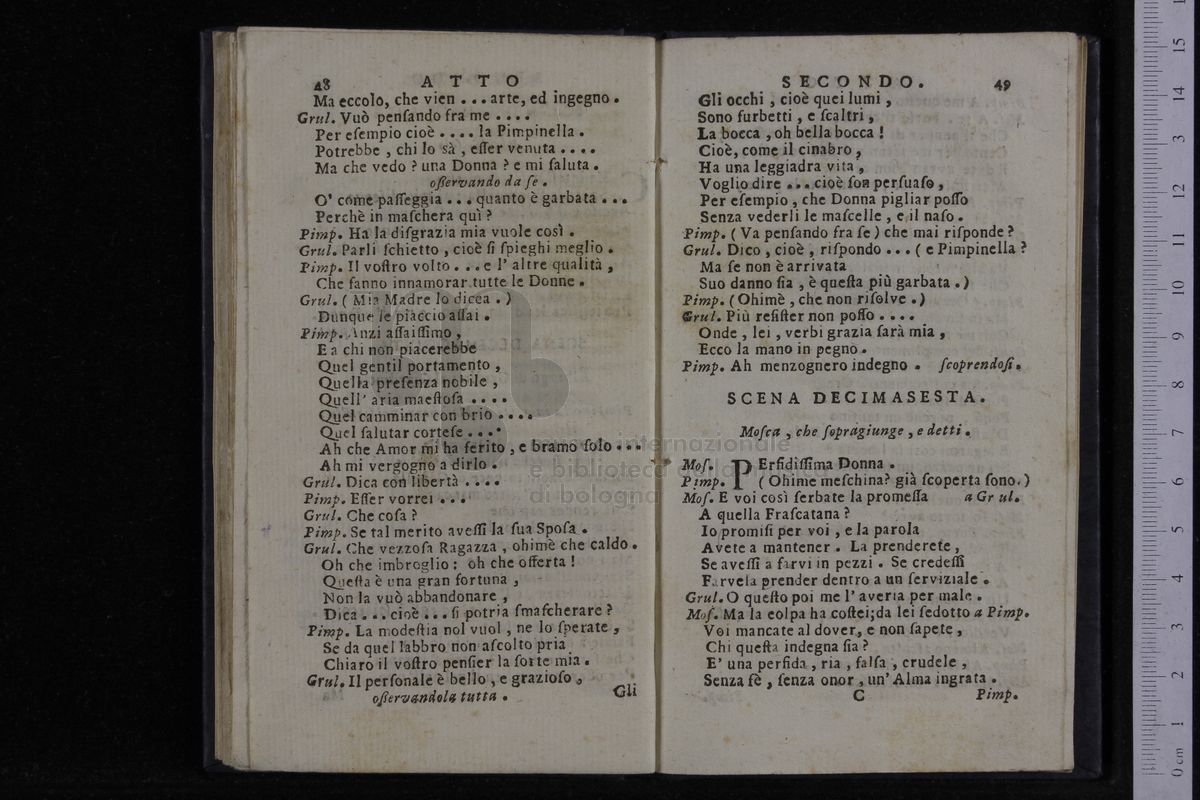 48 ATTO
Ma eccolo, che vien ... arte, ed ingegno.
Grul. Vuò penſando fra me ....
Per eſempio cioè .... la Pimpinella.
Potrebbe, chi lo sà, eſſer venuta ....
Ma che vedo? una Donna? e mi ſaluta.
oſſervando da ſe.
O' come paſſeggia ... quanto è garbata ...
Perchè in maſchera quì?
Pimp. Ha la diſgrazia mia vuole così.
Grul. Parli ſchietto, cioè ſi ſpieghi meglio.
Pimp. Il voſtro volto ... e l' altre qualità,
Che fanno innamorar tutte le Donne.
Grul. (Mia Madre lo dicea.)
Dunque le piaccio aſſai.
Pimp. Anzi aſſaiſſimo,
E a chi non piacerebbe
Quel gentil portamento,
Quella preſenza nobile,
Quell' aria maeſtoſa ....
Quel camminar con brio ....
Quel ſalutar corteſe ....
Ah che Amor mi ha ferito, e bramo ſolo ...
Ah mi vergogno a dirlo.
Grul. Dica con libertà ....
Pimp. Eſſer vorrei ...
Grul. Che coſa?
Pimp. Se tal merito aveſſi la ſua Spoſa.
Grul. Che vezzoſa Ragazza, ohimè che caldo.
Oh che imbroglio: oh che offerta!
Queſta è una gran fortuna,
Non la vuò abbandonare,
Dica ... cioè ... ſi potria ſmaſcherare?
Pimp. La modeſtia nol vuol, ne lo ſperate,
Se da quel labbro non aſcolto pria
Chiaro il voſtro penſier la ſorte mia.
Grul. Il perſonale è bello, e grazioſo,
oſſervandola tutta. Gli
SECONDO. 49
Gli occhi, cioè quei lumi,
Sono furbetti, e ſcaltri,
La bocca, oh bella bocca!
Cioè, come il cinabro,
Ha una leggiadra vita,
Voglio dire ... cioè ſon perſuaſo,
Per eſempio, che Donna pigliar poſſo
Senza vederli le maſcelle, e il naſo.
Pimp. (Va penſando fra ſe) che mai riſponde?
Grul. Dico, cioè, riſpondo ... (e Pimpinella?
Ma ſe non è arrivata
Suo danno ſia, è queſta più garbata.)
Pimp. (Ohimè, che non riſolve.)
Grul. Più reſiſter non poſſo ....
Onde, lei, verbi grazia ſarà mia,
Ecco la mano in pegno.
Pimp. Ah menzognero indegno. ſcoprendoſi.
SCENA DECIMASESTA.
Moſca, che ſopragiunge, e detti.
Moſ. PErfidiſſima Donna.
Pimp. (Ohime meſchina? già ſcoperta ſono.)
Moſ. E voi così ſerbate la promeſſa a Grul.
A quella Fraſcatana?
Io promiſi per voi, e la parola
Avete a mantener. La prenderete,
Se aveſſi a farvi in pezzi. Se credeſſi
Farvela prender dentro a un ſerviziale.
Grul. O queſto poi me l' averia per male.
Moſ. Ma la colpa ha coſtei; da lei ſedotto a Pimp.
Voi mancate al dover, e non ſapete,
Chi queſta indegna ſia?
E' una perfida, ria, falſa, crudele,
Senza fè, ſenza onor, un' Alma ingrata.
C Pimp.
museo internazionale
e biblioteca della musica
di bologna
0 cm 1 2 3 4 5 6 7 8 9 10 11 12 13 14 15